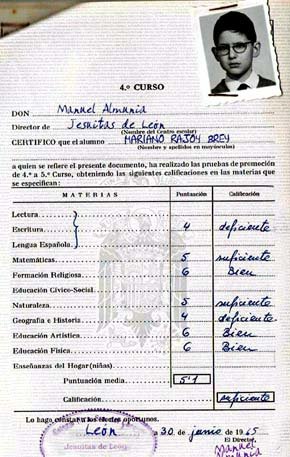 4.º CURSO
DON Manuel Almunia
Director de Jesuitas de León
(Nombre del Centro escolar)
CERTIFICO que el alumno MARIANO RAJOY BREY
(Nombre y apellidos en mayúsculas)
a quien se refiere el presente documento, ha realizado las pruebas de promoción
de 4.º a 5.º Curso, obteniendo las siguientes calificaciones en las materias que
se especifican:
MATERIAS Puntuación Calificación
Lectura
Escritura 4 deficiente
Lengua Española
Matemáticas 5 suficiente
Formación Religiosa 6 Bien
Educación Cívico-Social
Naturaleza 5 suficiente
Geografía e Historia 4 deficiente
Educación Artística 6 Bien
Educación Física 6 Bien
Enseñanzas del Hogar (niñas)
Puntuación media 5'1
Calificación suficiente
Lo hago constar a los efectos oportunos.
León a 30 de junio de 1965
El Director,
Jesuitas de León
Manuel
Almunia